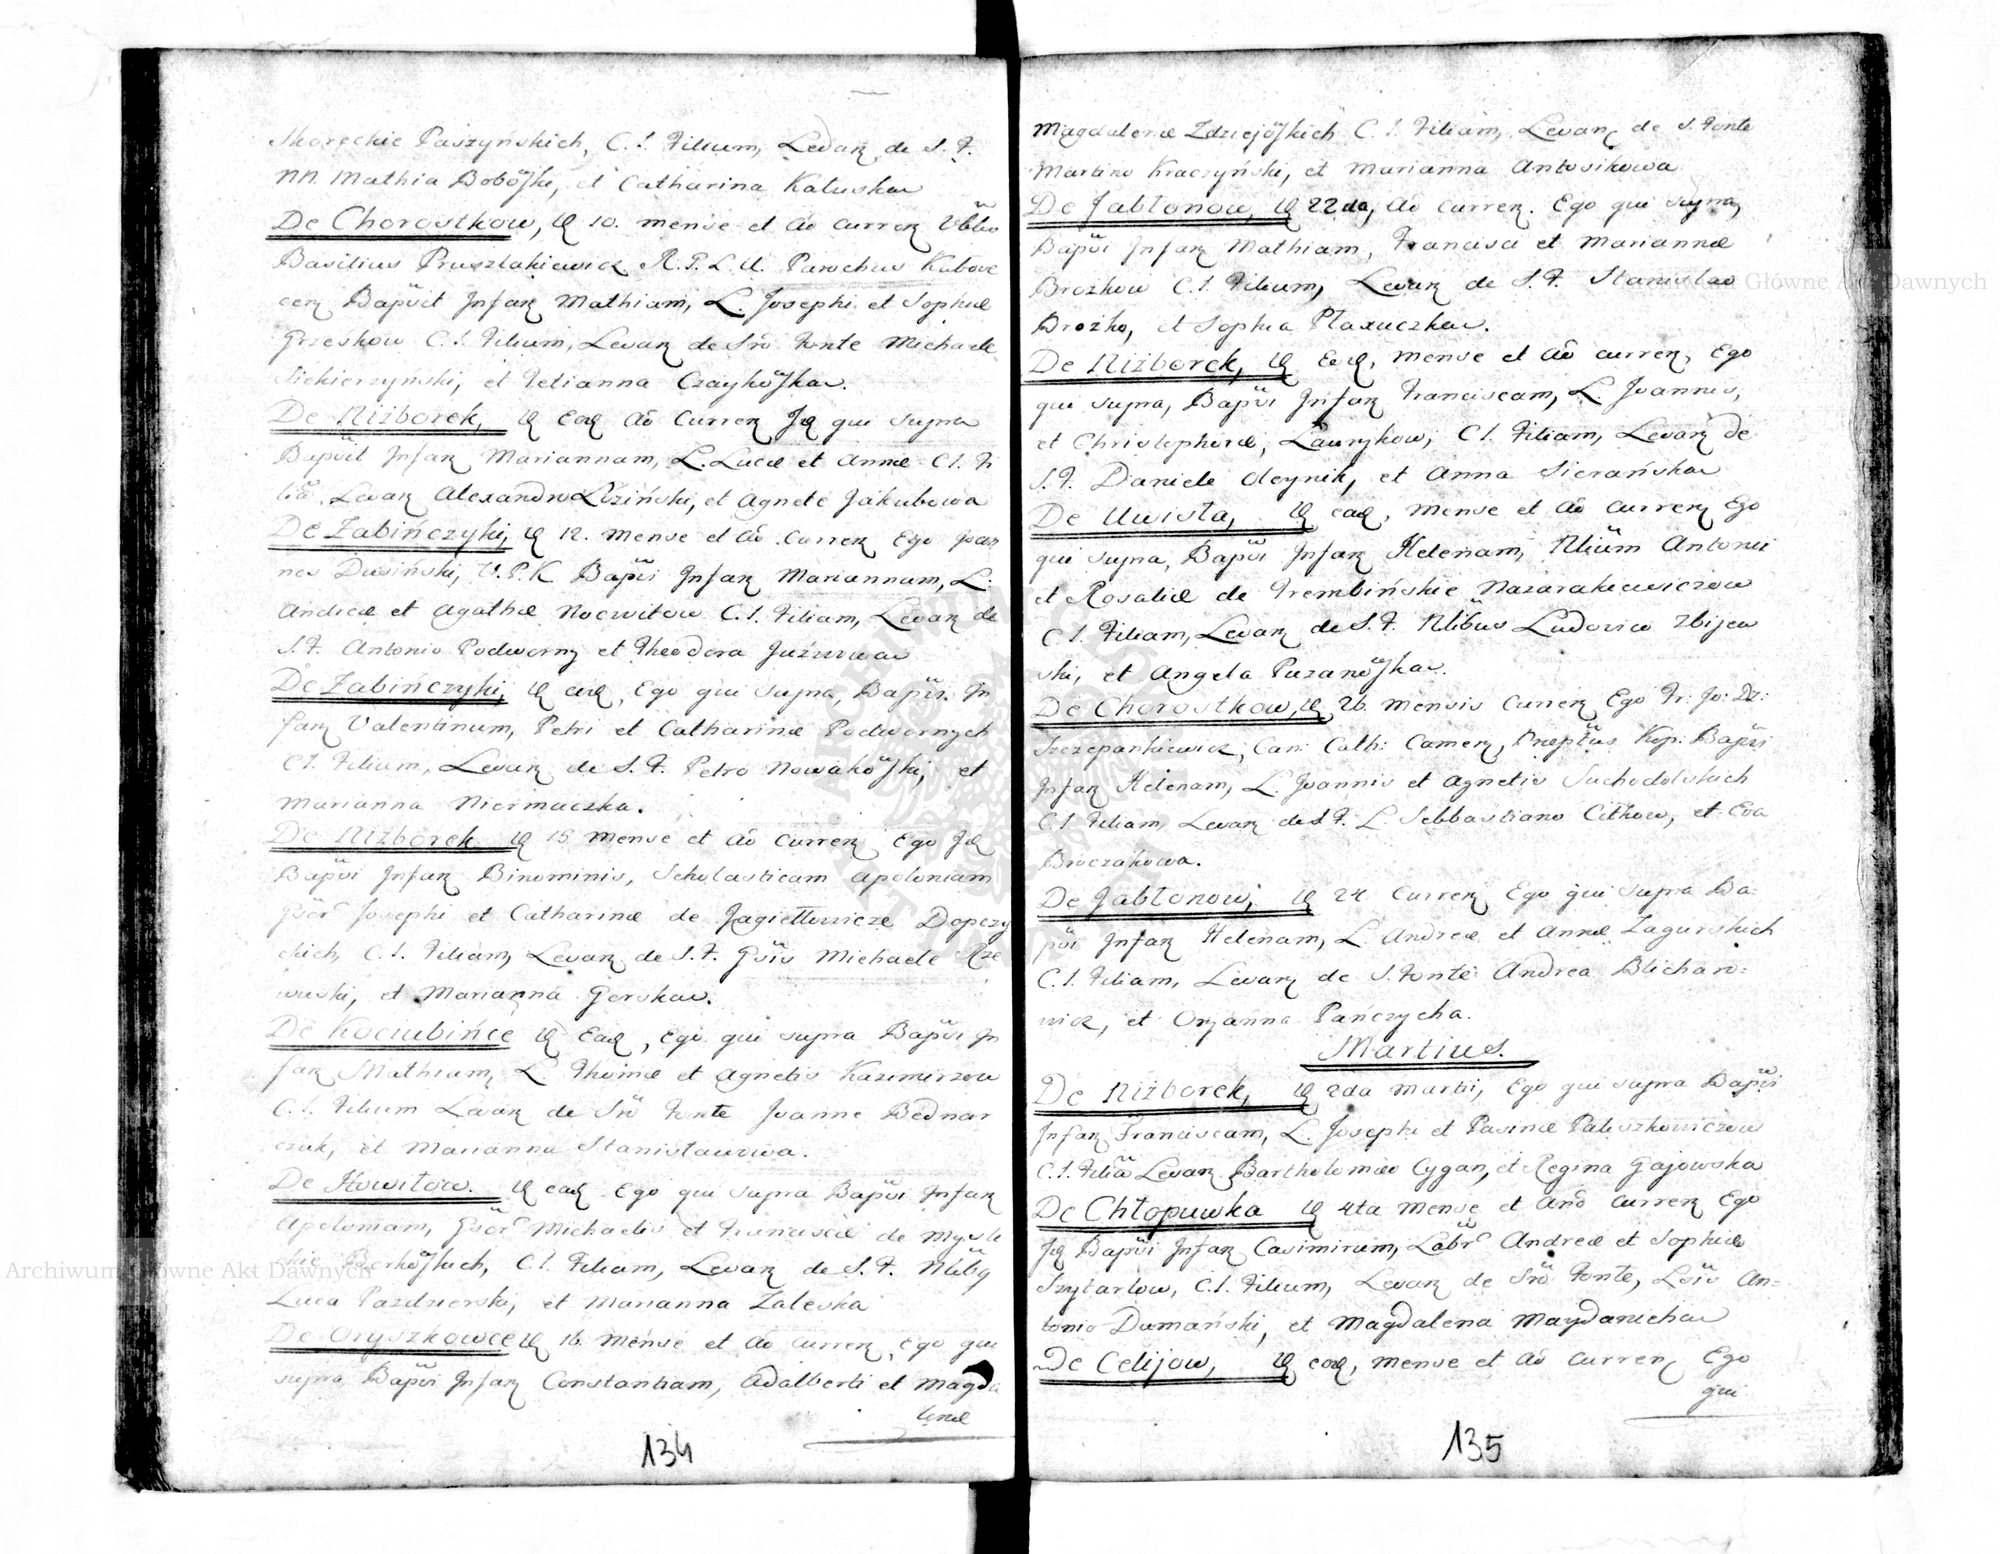 Skoręckie Paszyńskich, C. L. Filium, Levar de S. F.
NN. Mathia Bobowski, et Catharina Kaluska
De Chorostkow, 10. mense et Ao curren
Basilius Prusztakiewicz R. P. L. U. Parochus Kubove
cen Bapvit Infan Mathiam, L. Josephi et Sophiæ
Grzeskow C. L. Filium, Levan de Sro Fonte Michaele
Siekierzynski, et Tetianna Czaykowska.
De Niżborek, Ead Ao curren Id qui supra
Bapvit Infan Mariannam, L. Lucæ et Annæ C. L. Fi
lia Levan Alexandro Liziński, et Agnete Jakubowa
De Zabińczyki, 12. mense et Ao curren Ego Joan
nes Dusiński, V. P. K. Bapvi Infan Mariannam, L.
Andreæ et Agathæ Nocwitow C. L. Filiam, Levan de
S. F. Antonio Podworny et Theodora
De Zabińczyki, ead, Ego qui supra, Bapvi In
fan Valentinum, Petri et Catharinæ Podwornych
C. L. Filium, Levan de S. F. Petro Nowakowski, et
Marianna Niermaczka.
De Niżborek 15 mense et Ao curren Ego Id
Bapvi Infan Binominis, Scholasticam Apoloniam
Gsor Josephi et Catharinæ de Jagiellowicze Dopczy
ckich, C. L. Filiam, Levan de S. F. Gsis Michaele Rze
wuski, et Marianna Gerska.
De Kociubińce Ead, Ego qui supra Bapvi In
fan Mathiam, L. Thomæ et Agnetis Kazimirzow
C. L. Filium Levan de Sro Fonte Joanne Bednar
czuk, et Marianna Stanisławowa.
De Howitow. ead Ego qui supra Bapvi Infan
Apoloniam, Gsor Michaelis et Franciscæ de
Berkowskich, C. L. Filiam, Levan de S. F.
Luca Pazdzierski, et Marianna Zaleska
De Oryszkowce 16. mense et Ao curren, Ego qui
supra Bapvi Infan Constantiam, Adalberti et Magda
lenæ
134
Magdalenæ Zdziejowskich C. L. Filiam, Levan de S. Fonte
Martino Kraczyński, et Marianna Antosikowa
De Jabłonow, 22da, Ao curren. Ego qui supra,
Bapvi Infan Mathiam, Francisci et Mariannæ
Brożkow C. L. Filium, Levan de S. F. Stanislao
Brożko, et Sophia Ptaxuczka.
De Niżborek, Ead, mense et Ao curren, Ego
qui supra, Bapvi Infan Franciscam, L. Joannis,
et Christophoræ, Laurykow, C. L. Filiam, Levan de
S. F. Daniele Oleynik, et Anna Sierańska
De Uwisła, ead, mense et Ao curren Ego
qui supra, Bapvi Infan Helenam, Antonii
et Rosaliæ de Trembińskie Nazarakiewiczow
C. L. Filiam, Levan de S. F. Ludovico Zbijew
ski, et Angela Puzanowska.
De Chorostkow, 26. mensis curren Ego Fr: Jo: Dr:
Szczepankiewicz, Can: Cath: Camen, Præptus Kop: Bapvi
Infan Helenam, L. Joannis et Agnetis Suchodolskich
C. L. Filiam, Levan de S. F. L. Sebbastiano Citkow, et Eva
Broczakowa.
De Jabłonow, 24 curren Ego qui supra Ba-
pvi Infan Helenam, L. Andreæ et Annæ Zagurskich
C. L. Filiam, Levan de S. Fonte Andrea Blichar-
wicz, et Orzanna Panczycha.
Martius.
De Niżborek, 2da Martii, Ego qui supra Bapvi
Infan Franciscam, L. Josephi et Pasinæ Paluszkowiczow
C. L. Filia Levan Bartholomæo Cygan, et Regina Gajowska
De Chłopuwka 4ta mense et Ano curren Ego
Id Bapvi Infan Casimirum, Labr Andreæ et Sophiæ
Szytarlow, C. L. Filium, Levan de Sro Fonte, An-
tonio Dumański, et Magdalena Maydanicha
De Celijow, ead, mense et Ao curren Ego
qui
135
Archiwum Główne Akt Dawnych